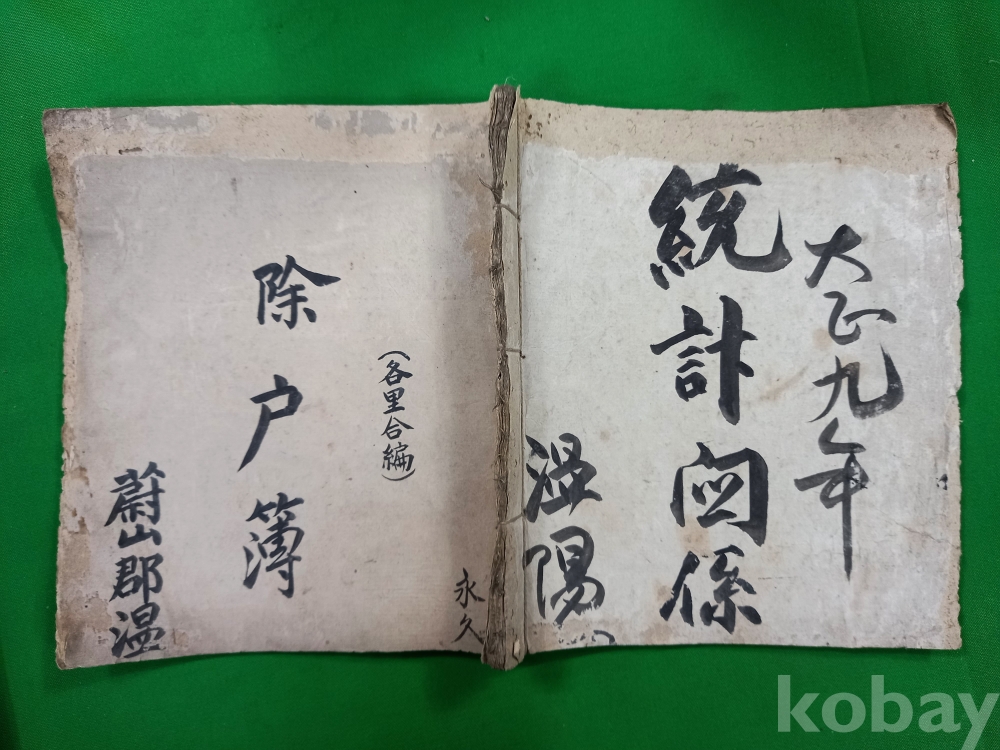 大正九年
統計関係
温陽
永久
(各里合編)
除戸簿
蔚山郡温
kobay